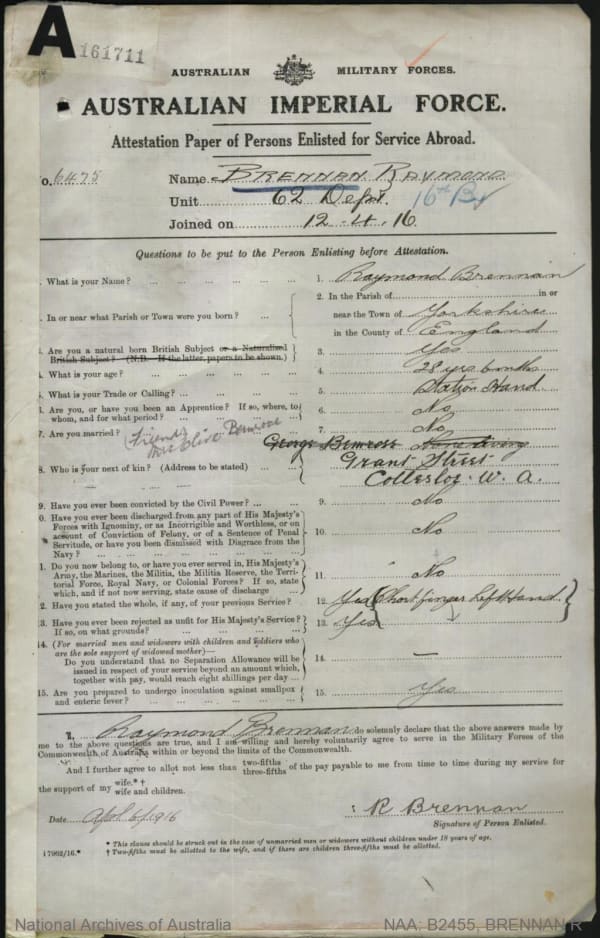 A 161711
AUSTRALIAN MILITARY FORCES.
AUSTRALIAN IMPERIAL FORCE.
Attestation Paper of Persons Enlisted for Service Abroad.
o. 6475 Name BRENNAN RAYMOND
Unit 62 Dept. 16th Bn
Joined on 12.4.16
Questions to be put to the Person Enlisting before Attestation.
. What is your Name? ... 1. Raymond Brennan
. In or near what Parish or Town were you born? ... 2. In the Parish of in or
near the Town of Yorkshire
in the County of England
. Are you a natural born British Subject or a Naturalised
British Subject? (N.B.—If the latter, papers to be shown.) 3. Yes
4. What is your age? ... 4. 28 yrs 6 mths
5. What is your Trade or Calling? ... 5. Station Hand
6. Are you, or have you been an Apprentice? If so, where, to
whom, and for what period? ... 6. No
7. Are you married? ... 7. No
(Friend) Mrs Olive Bemrose
George Bemrose
8. Who is your next of kin? (Address to be stated) ... Grant Street
Cottesloe. W. A.
9. Have you ever been convicted by the Civil Power? ... 9. No
0. Have you ever been discharged from any part of His Majesty's
Forces with Ignominy, or as Incorrigible and Worthless, or on
account of Conviction of Felony, or of a Sentence of Penal
Servitude, or have you been dismissed with Disgrace from the
Navy? ... 10. No
1. Do you now belong to, or have you ever served in, His Majesty's
Army, the Marines, the Militia, the Militia Reserve, the Terri-
torial Force, Royal Navy, or Colonial Forces? If so, state
which, and if not now serving, state cause of discharge ... 11. No
2. Have you stated the whole, if any, of your previous Service? 12. Yes (Short finger Left Hand)
3. Have you ever been rejected as unfit for His Majesty's Service?
If so, on what grounds? ... 13. Yes
14. (For married men and widowers with children and soldiers who
are the sole support of widowed mother)—
Do you understand that no Separation Allowance will be
issued in respect of your service beyond an amount which,
together with pay, would reach eight shillings per day ... 14. —
15. Are you prepared to undergo inoculation against smallpox
and enteric fever? ... 15. Yes
I, Raymond Brennan do solemnly declare that the above answers made by
me to the above questions are true, and I am willing and hereby voluntarily agree to serve in the Military Forces of the
Commonwealth of Australia within or beyond the limits of the Commonwealth.
And I further agree to allot not less than two-fifths three-fifths of the pay payable to me from time to time during my service for
the support of my wife.*† wife and children.
Date April 6/1916 R Brennan
Signature of Person Enlisted.
* This clause should be struck out in the case of unmarried men or widowers without children under 18 years of age.
17902/16.* † Two-fifths must be allotted to the wife, and if there are children three-fifths must be allotted.
National Archives of Australia NAA: B2455, BRENNAN R